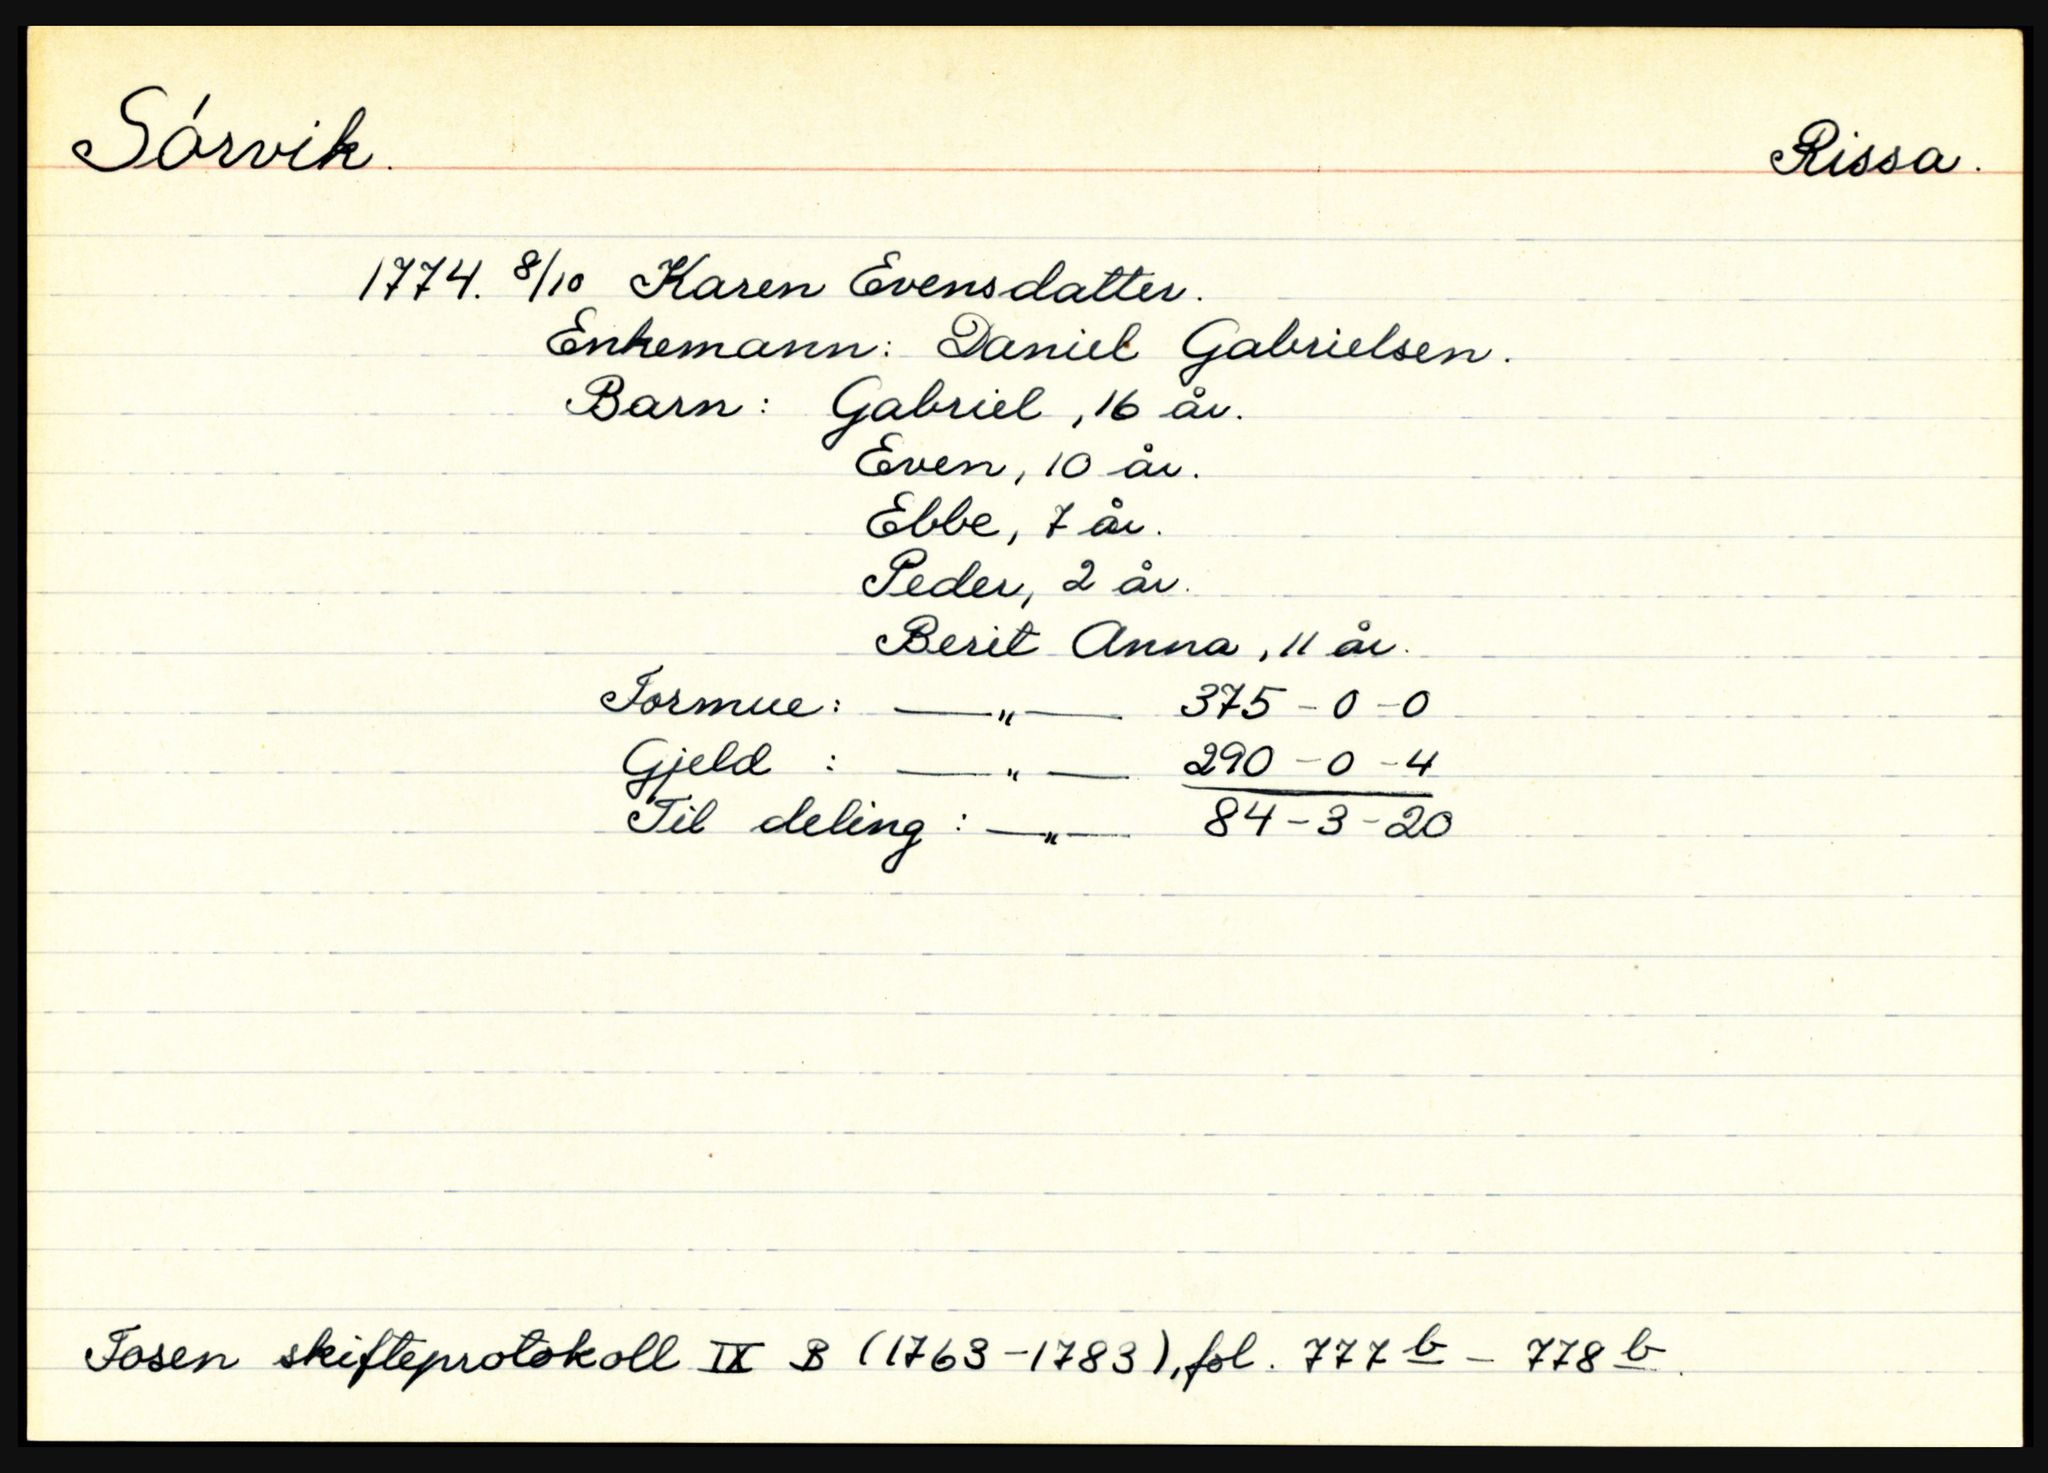 Sórvik. Rissa.
1774. 8/10 Karen Evensdatter.
Enkemann: Daniel Gabrielsen.
Barn: Gabriel, 16 år.
Even, 10 år.
Ebbe, 7 år.
Peder, 2 år.
Berit Anna, 11 år.
Formue: —„— 375 - 0 - 0
Gjeld : —„— 290 - 0 - 4
Til deling: —„— 84 - 3 - 20
Fosen skifteprotokoll IX B (1763-1783), fol. 777 b - 778 b.